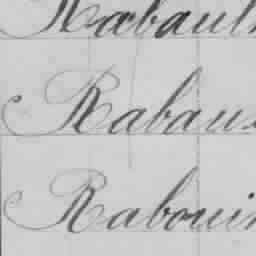 Rabault
Rabau
Rabouin